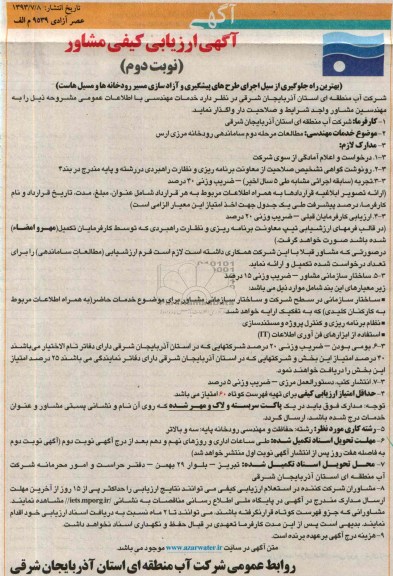 آگهی
تاریخ انتشار: ۱۳۹۳/۷/۸
عصر آزادی ۹۵۳۹ م الف
آگهی ارزیابی کیفی مشاور
(نوبت دوم)
(بهترین راه جلوگیری از سیل اجرای طرح های پیشگیری و آزاد سازی مسیر رودخانه ها و مسیل هاست)
شرکت آب منطقه ای استان آذربایجان شرقی در نظر دارد خدمات مهندسی با اطلاعات عمومی مشروحه ذیل را به
مهندسین مشاور واجد شرایط و صلاحیت دار واگذار نماید.
۱- کارفرما: شرکت آب منطقه ای استان آذربایجان شرقی
۲- موضوع خدمات مهندسی: مطالعات مرحله دوم ساماندهی رودخانه مرزی ارس
۳- مدارک لازم:
۳-۱. درخواست و اعلام آمادگی از سوی شرکت
۳-۲. رونوشت گواهی تشخیص صلاحیت از معاونت برنامه ریزی و نظارت راهبردی در رشته و پایه مندرج در بند ۴
۳-۳. تجربه (سابقه اجرائی مشابه طی ۵ سال اخیر) – ضریب وزنی ۴۰ درصد
(ارائه تصویر ابلاغیه قراردادها به همراه اطلاعات مربوط به هر قرارداد شامل عنوان، مبلغ، مدت، تاریخ قرارداد و نام
کارفرما، درصد پیشرفت طی یک جدول جهت اخذ امتیاز این معیار الزامی است)
۳-۴. ارزیابی کارفرمایان قبلی – ضریب وزنی ۲۰ درصد
(در قالب فرمهای ارزشیابی تیپ معاونت برنامه ریزی و نظارت راهبردی که توسط کارفرمایان تکمیل (مهر و امضاء)
شده باشد صورت خواهد گرفت.)
در صورتی که مشاور قبلا با این شرکت همکاری داشته است لازم است فرم ارزشیابی (مطالعات ساماندهی) را برای
تعداد درخواست شده تکمیل و ارائه نماید.
۳-۵. ساختار سازمانی مشاور – ضریب وزنی ۱۵ درصد
زیر معیارهای این بند شامل موارد ذیل می باشد:
ساختار سازمانی در سطح شرکت و ساختار سازمانی مشاور برای موضوع خدمات حاضر (به همراه اطلاعات مربوط
به کارکنان کلیدی) که به تفکیک ارایه خواهد شد.
نظام برنامه ریزی و کنترل پروژه و مستندسازی
استفاده از ابزارهای فن آوری اطلاعات (IT)
۳-۶. بومی بودن – ضریب وزنی ۲۰ درصد شرکتهایی که در استان آذربایجان شرقی دارای دفاتر تام الاختیار می باشند
۴۰ درصد امتیاز این بخش و شرکتهایی که در استان آذربایجان شرقی دارای دفاتر نمایندگی می باشند ۲۵ درصد امتیاز
این بخش را دریافت خواهند نمود.
۳-۷. انتشار کتب، دستورالعمل مرزی – ضریب وزنی ۵ درصد
۴- حداقل امتیاز ارزیابی کیفی برای تهیه فهرست کوتاه ۶۰ امتیاز می باشد.
توجه: مدارک فوق باید در یک پاکت سربسته و لاک و مهر شده که روی آن نام و نشانی پستی مشاور و عنوان
خدمات درج شده باشد، ارسال گردد.
۵- رشته کاری مورد نظر: رشته: حفاظت و مهندسی رودخانه پایه: سه و بالاتر
۶- مهلت تحویل اسناد تکمیل شده: طی ساعات اداری و روزهای نهم و دهم بعد از درج آگهی نوبت دوم (آگهی نوبت دوم
به فاصله هفت روز پس از انتشار آگهی نوبت اول منتشر خواهد شد)
۷- محل تحویل اسناد تکمیل شده: تبریز – بلوار ۲۹ بهمن – دفتر حراست و امور محرمانه شرکت
آب منطقه ای استان آذربایجان شرقی
۸- مشاوران شرکت کننده در استعلام ارزیابی کیفی می توانند نتایج ارزیابی را حداکثر پس از ۱۵ روز از آخرین مهلت
ارسال مدارک مندرج در آگهی در پایگاه ملی اطلاع رسانی مناقصات به نشانی //iets.mporg.ir مشاهده نمایند
مشاورانی که جزو فهرست کوتاه قرار نگرفته باشند، می توانند تا ۲ ماه نسبت به دریافت اسناد ارزیابی خود اقدام
نمایند. بدیهی است پس از این مدت کارفرما تعهدی در قبال حفظ و نگهداری اسناد نخواهد داشت.
۹- هزینه درج آگهی بر عهده برنده است.
متن آگهی در سایت www.azarwater.ir موجود می باشد.
روابط عمومی شرکت آب منطقه ای استان آذربایجان شرقی